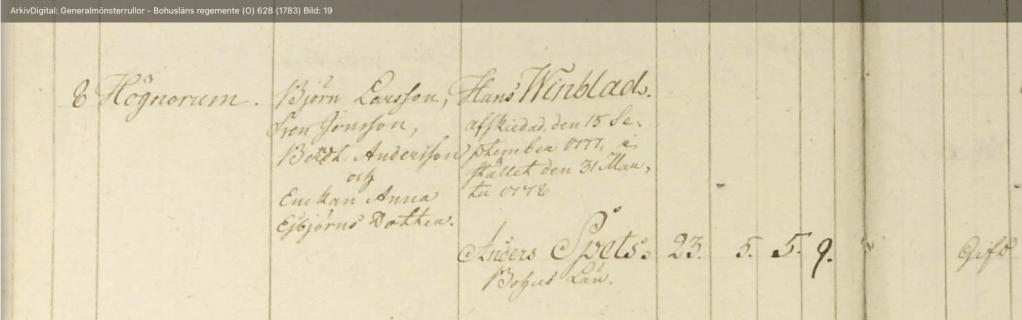 ArkivDigital: Generalmönsterrullor - Bohusläns regemente (O) 628 (1783) Bild: 19
8 Högnorum.
Björn Larsson,
Sven Jonsson,
Berdt Andersson
och
Enckan Anna
Esbjörns Dotter.
Hans Winblad.
afskiedad den 15 Se-
ptember 1777, i
stället den 31 Mar-
tii 1778
Anders Spets. 23. 5. 5. 9. Gift
Bohus Län.